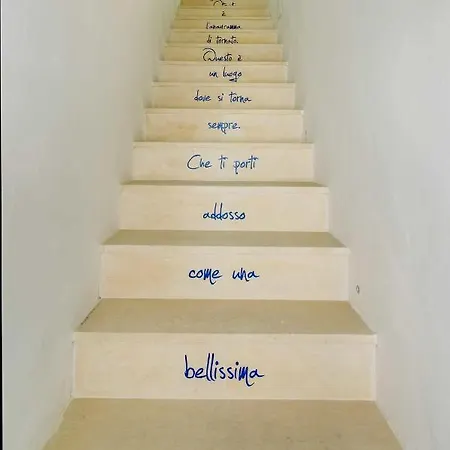 è
l'anagramma
di tornato.
Questo è
un luogo
dove si torna
sempre.
Che ti porti
addosso
come una
bellissima